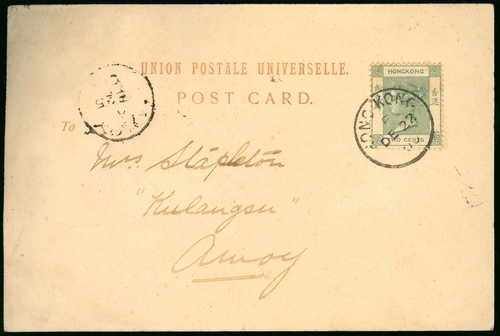 UNION POSTALE UNIVERSELLE.
POST CARD.
HONGKONG
香港
TWO CENTS
HONG KONG
DE 22
25
To
Mrs Stapleton
"Kulangsu"
Amoy